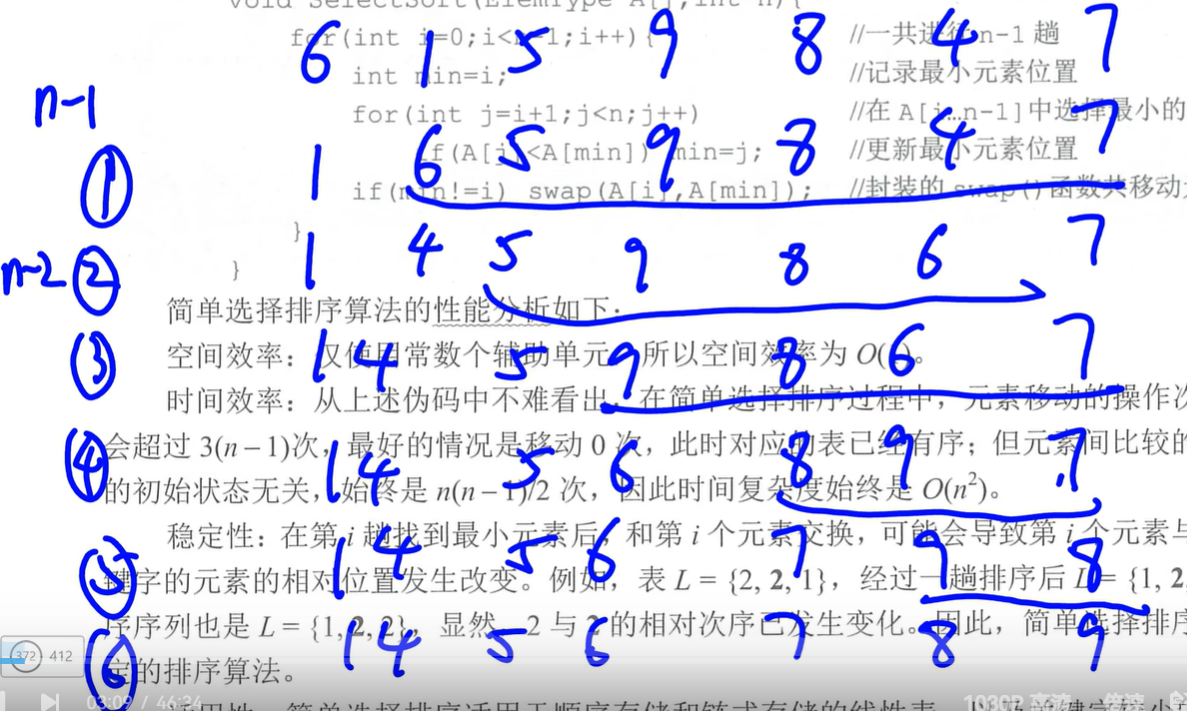 void SelectSort(ElemType A[],int n){
for(int i=0;i<n-1;i++){ //一共进行n-1趟
6 1 5 9 8 4 7
int min=i; //记录最小元素位置
n-1
for(int j=i+1;j<n;j++) //在A[i…n-1]中选择最小的
if(A[j]<A[min]) min=j; //更新最小元素位置
① 1 6 5 9 8 4 7
if(min!=i) swap(A[i],A[min]); //封装的swap()函数共移动
}
n-2 ② 1 4 5 9 8 6 7
}
简单选择排序算法的性能分析如下:
空间效率:仅使用常数个辅助单元,所以空间效率为O( )。
③ 1 4 5 9 8 6 7
时间效率:从上述伪码中不难看出,在简单选择排序过程中,元素移动的操作次
会超过3(n-1)次,最好的情况是移动0次,此时对应的表已经有序;但元素间比较的
④ 1 4 5 6 8 9 7
的初始状态无关,始终是n(n-1)/2次,因此时间复杂度始终是O(n²)。
稳定性:在第i趟找到最小元素后,和第i个元素交换,可能会导致第i个元素与
⑤ 1 4 5 6 7 9 8
键字的元素的相对位置发生改变。例如,表L={2, 2, 1},经过一趟排序后L={1, 2,
序序列也是L={1, 2, 2},显然,2与2的相对次序已发生变化。因此,简单选择排序
⑥ 1 4 5 6 7 8 9
372 412
定的排序算法。
03:09 / 46:24 1080P 高清 倍速
简单选择排序适用于顺序存储和链式存储的线性表